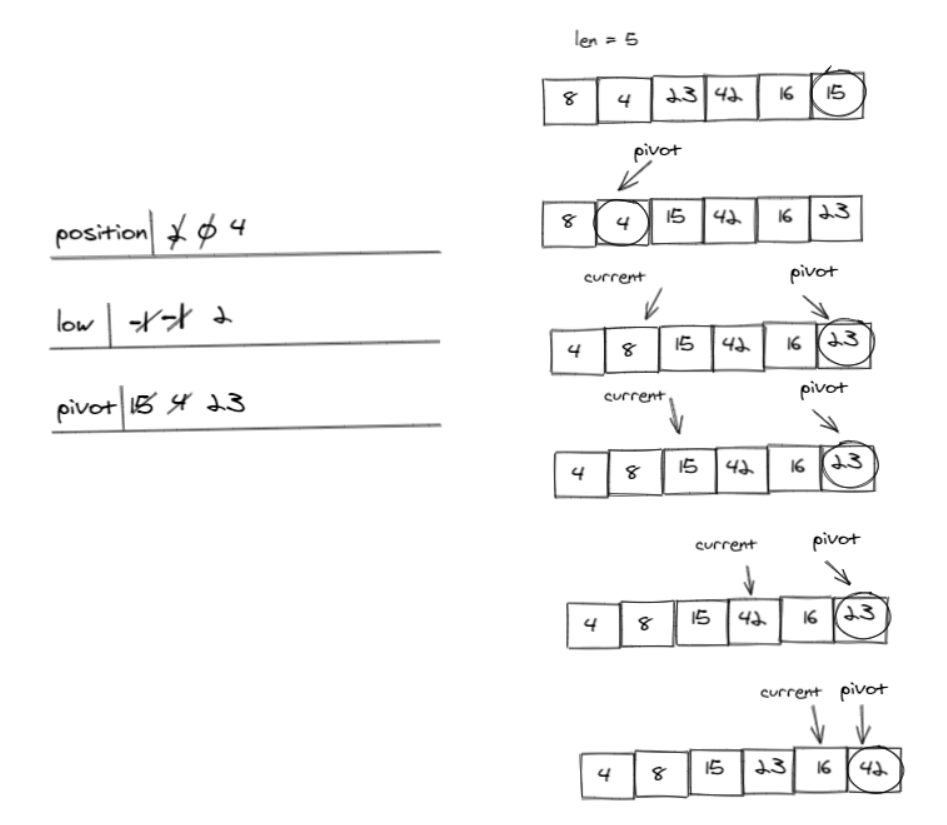 position 2 0 4
low -1 -1 2
pivot 15 4 23
len = 5
8 4 23 42 16 15
pivot
8 4 15 42 16 23
current pivot
4 8 15 42 16 23
current pivot
4 8 15 42 16 23
current pivot
4 8 15 42 16 23
current pivot
4 8 15 23 16 42